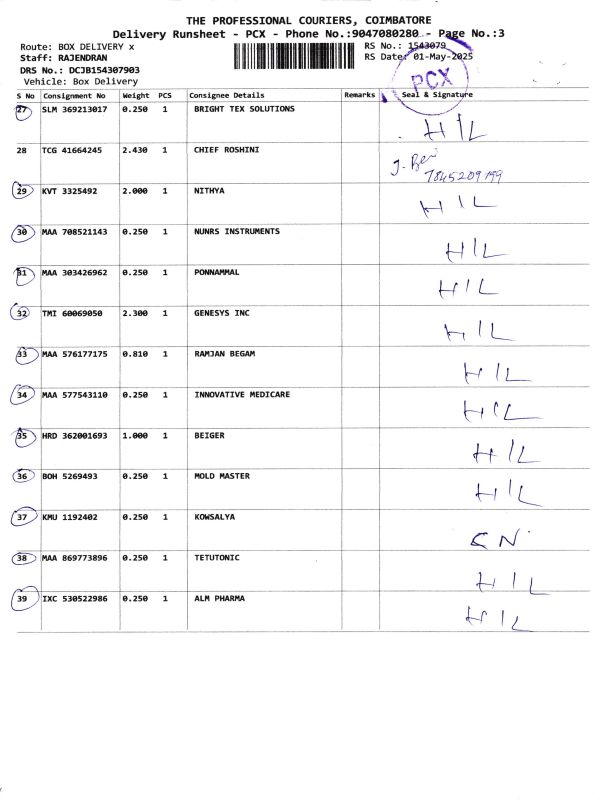 THE PROFESSIONAL COURIERS, COIMBATORE
Delivery Runsheet - PCX - Phone No.:9047080280 - Page No.:3
Route: BOX DELIVERY x RS No.: 1543079
Staff: RAJENDRAN RS Date: 01-May-2025
DRS No.: DCJB154307903
Vehicle: Box Delivery
PCX
S No Consignment No Weight PCS Consignee Details Remarks Seal & Signature
27 SLM 369213017 0.250 1 BRIGHT TEX SOLUTIONS HIL
28 TCG 41664245 2.430 1 CHIEF ROSHINI
7845209199
29 KVT 3325492 2.000 1 NITHYA HIL
30 MAA 708521143 0.250 1 NUNRS INSTRUMENTS HIL
31 MAA 303426962 0.250 1 PONNAMMAL HIL
32 TMI 60069050 2.300 1 GENESYS INC HIL
33 MAA 576177175 0.810 1 RAMJAN BEGAM HIL
34 MAA 577543110 0.250 1 INNOVATIVE MEDICARE HIL
35 HRD 362001693 1.000 1 BEIGER HIL
36 BOH 5269493 0.250 1 MOLD MASTER HIL
37 KMU 1192402 0.250 1 KOWSALYA CN
38 MAA 869773896 0.250 1 TETUTONIC HIL
39 IXC 530522986 0.250 1 ALM PHARMA HIL